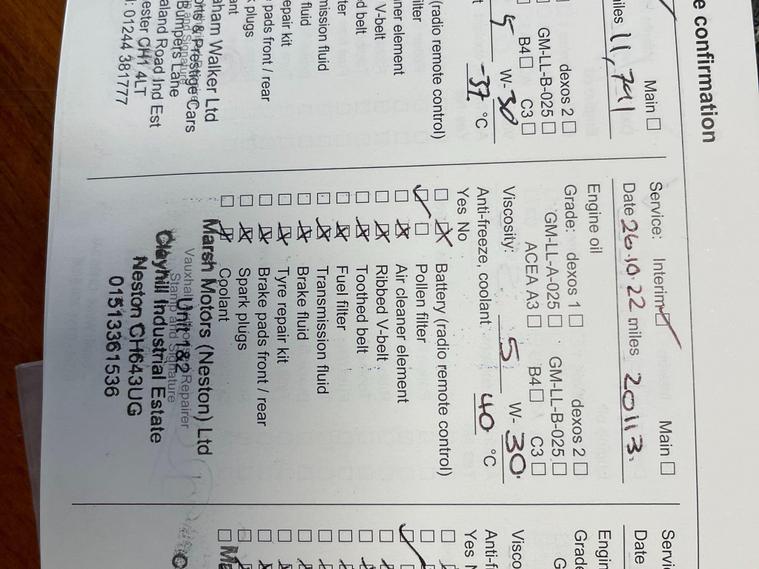 e confirmation
Main
miles 11,741
dexos 2
GM-LL-B-025
B4 C3
5 W-30
-37 °C
(radio remote control)
filter
ner element
V-belt
d belt
ter
mission fluid
fluid
epair kit
pads front / rear
plugs
ant
ham Walker Ltd
& Prestige Cars
Bumpers Lane
aland Road Ind Est
ester CH1 4LT
: 01244 381777
Service: Interim Main
Date 26.10.22 miles 20113.
Engine oil
Grade: dexos 1 dexos 2
GM-LL-A-025 GM-LL-B-025
ACEA A3 B4 C3
Viscosity: 5 W-30.
Anti-freeze, coolant 40 °C
Yes No
Battery (radio remote control)
Pollen filter
Air cleaner element
Ribbed V-belt
Toothed belt
Fuel filter
Transmission fluid
Brake fluid
Tyre repair kit
Brake pads front / rear
Spark plugs
Coolant
Marsh Motors (Neston) Ltd
Vauxhall Repairer
Unit 1&2
Stamp and Signature
Clayhill Industrial Estate
Neston CH643UG
01513361536
Servi
Date
Engin
Grade
G
Visco
Anti-f
Yes N
Ma